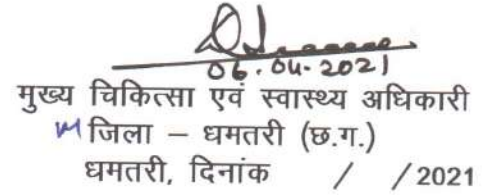 06.04.2021
मुख्य चिकित्सा एवं स्वास्थ्य अधिकारी
जिला – धमतरी (छ.ग.)
धमतरी, दिनांक / / 2021